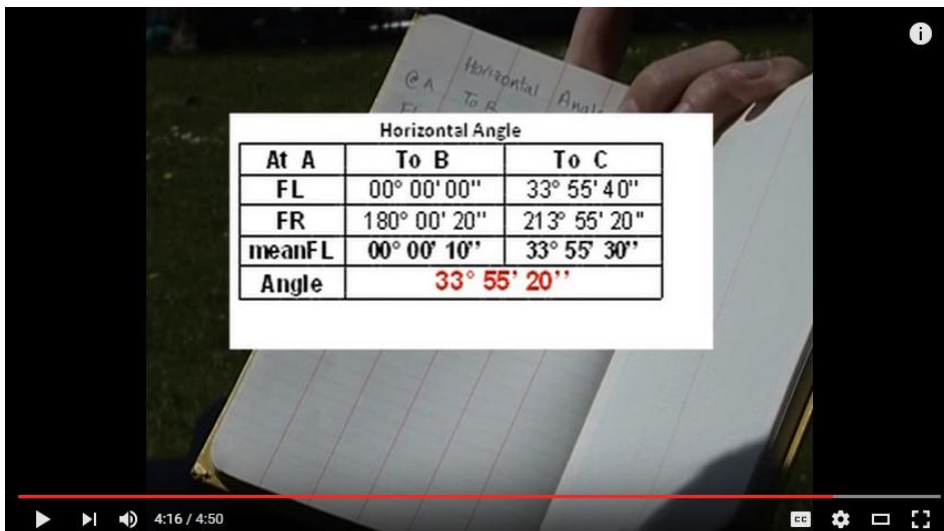 Horizontal
@ A To B Angle
FL
Horizontal Angle
At A To B To C
FL 00° 00' 00" 33° 55' 40"
FR 180° 00' 20" 213° 55' 20"
meanFL 00° 00' 10'' 33° 55' 30''
Angle 33° 55' 20''
4:16 / 4:50
CC